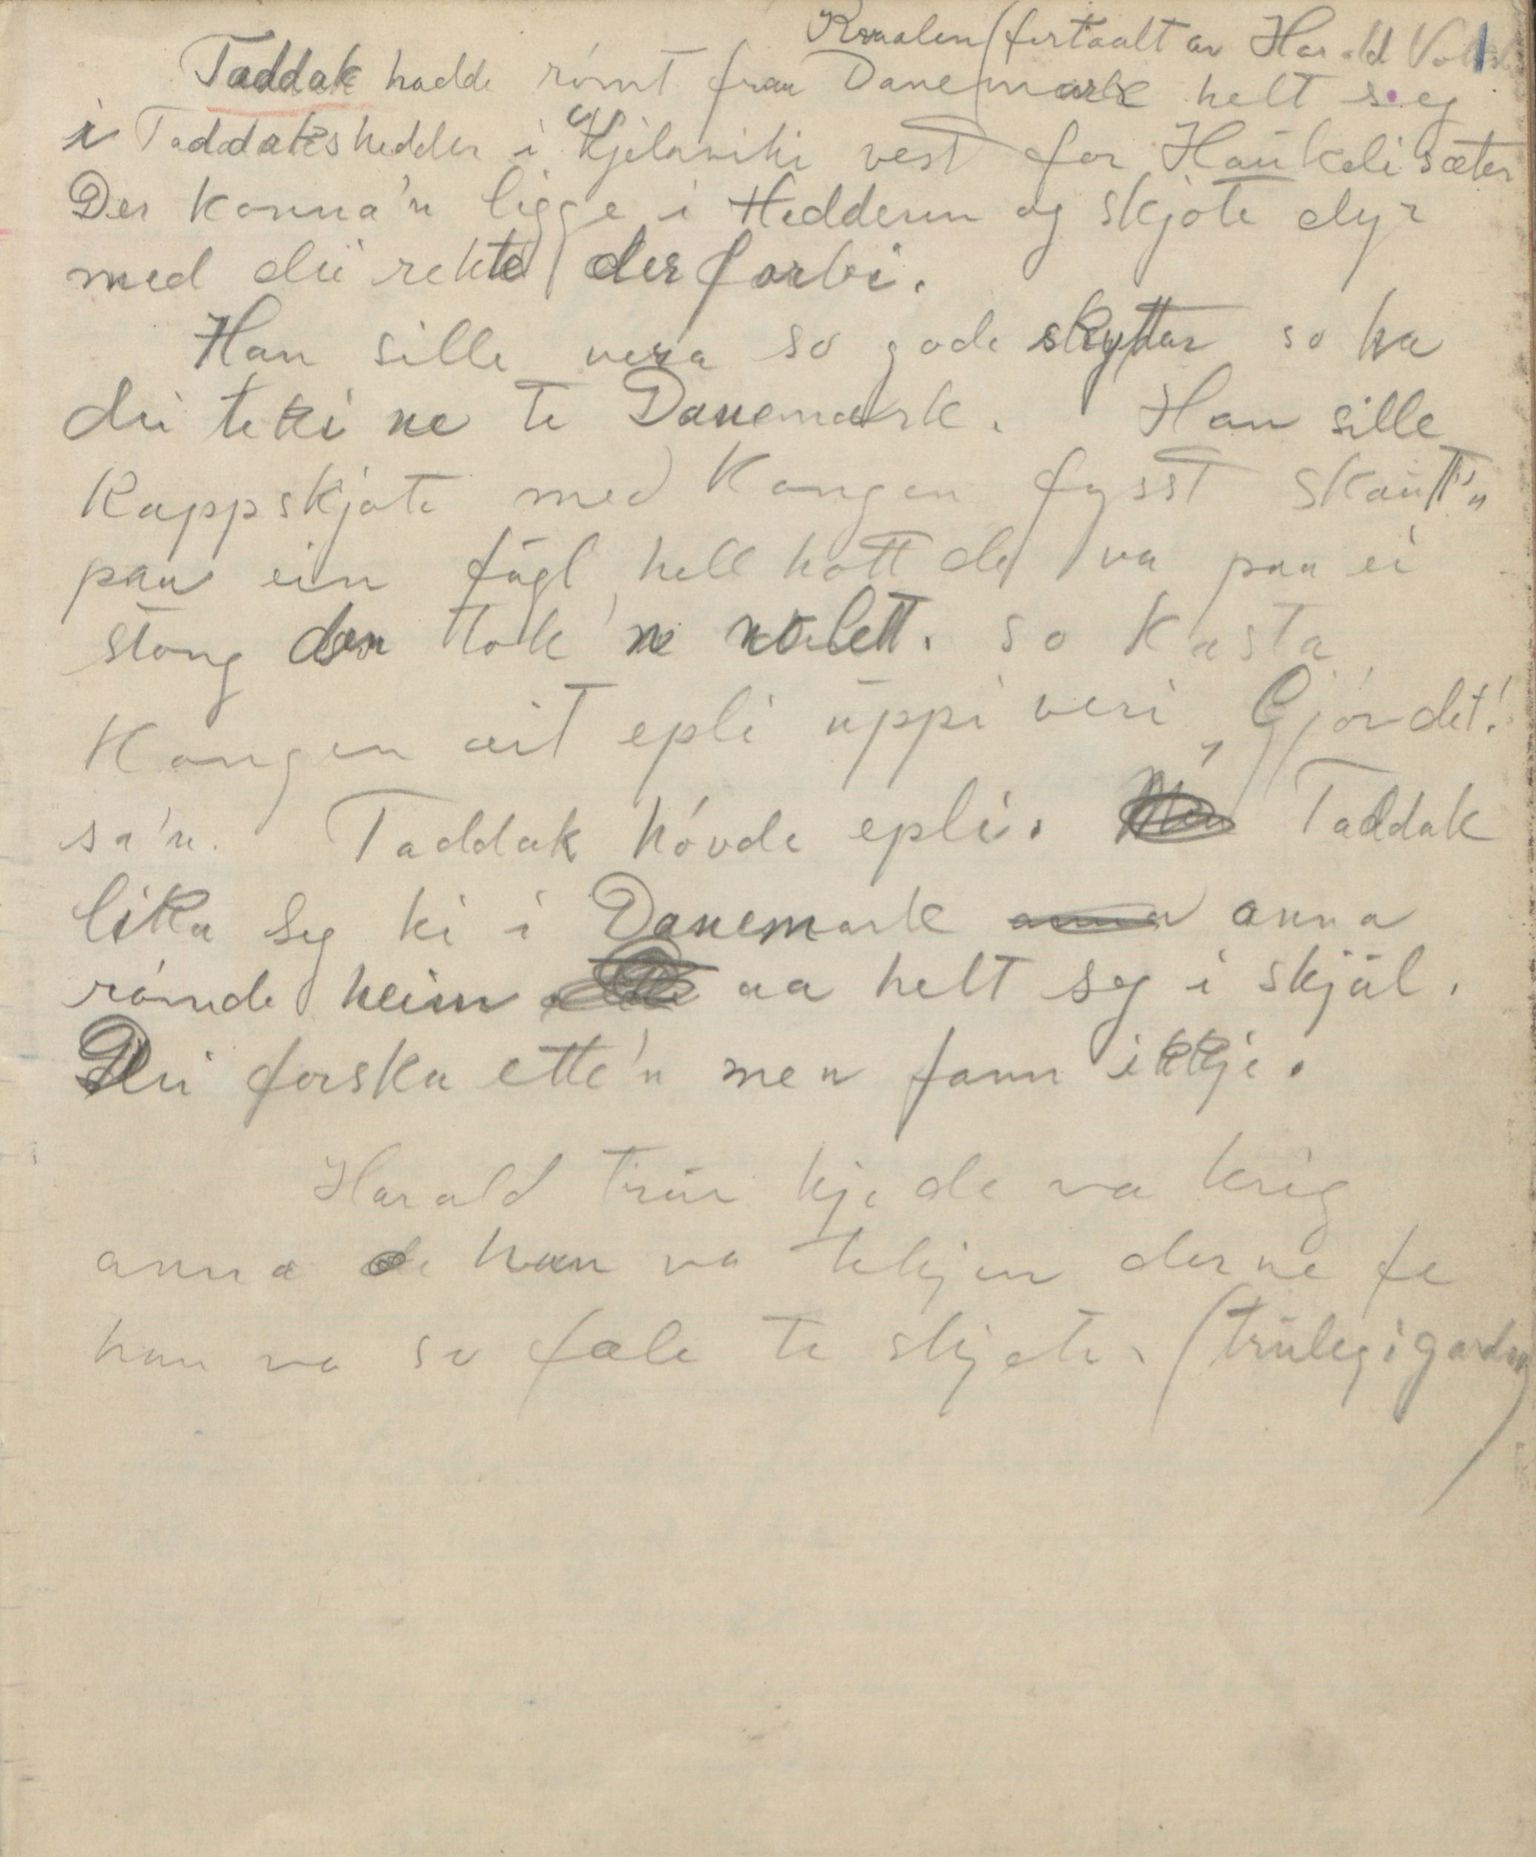 (fortaalt av Harald
Taddak hadde rømt fraa Danemark helt seg
i Taddakshedder i Kjelaviki vest for Haukelisæter
Der konna'n ligge i Hedderen og skjote dyr
med dei rekte derforbi.
Han sille vera so gode skyttar so ha
dei teki ne te Danemark. Han sille
Kappskjote med Kongen fysst skaut'n
paa ein fugl hell hott de va paa ei
stong den tok 'n so kasta
Kongen eit epli uppi veri „Gjør det!
sa'n. Taddak hóvde epli. Taddak
lika seg ki i Danemark anna
rømde heim aa helt seg i skjål.
Dei forska ette'n men fann ikkje.
Harald trur kje de va krig
anna de han va tekjen derne fe
han va so fæle te skjote. (truleg i garden)